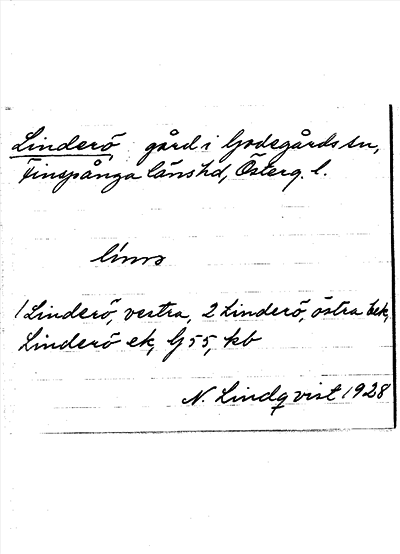 Linderö gård i Godegårds sn,
Finspånga länshd, Österg. l.
1 Linderö, vestra, 2 Linderö, östra hek,
Linderö ek, G 55, kb
N. Lindqvist 1928